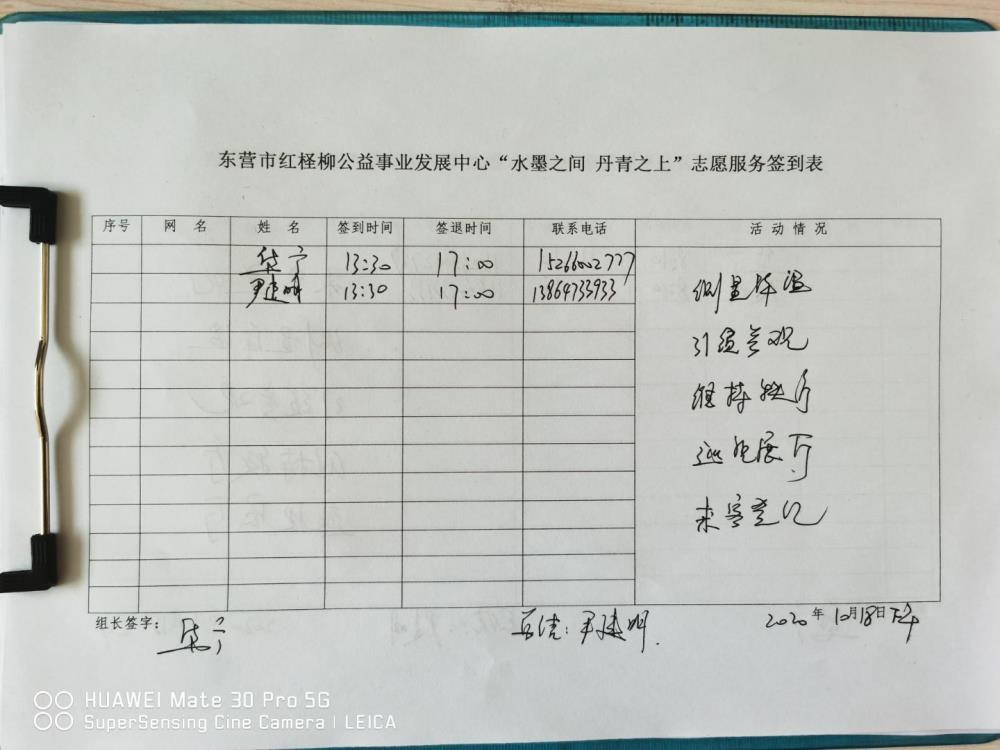 东营市红柽柳公益事业发展中心“水墨之间 丹青之上”志愿服务签到表
序号 网 名 姓 名 签到时间 签退时间 联系电话 活 动 情 况
宁 13:30 17:00 15266002777
尹建明 13:30 17:00 13864733933
测量体温
引导参观
维持秩序
巡视展厅
来宾登记
组长签字： 宁
尹建明.
2020年10月18日下午
HUAWEI Mate 30 Pro 5G
SuperSensing Cine Camera | LEICA